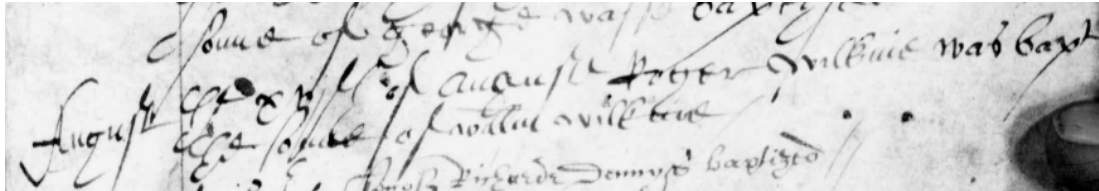 sonne of George wass baptys
August the xvth of August Roger Wilkine was bapt
the sonne of Wallm Wilkine
Richarde Dennys baptized